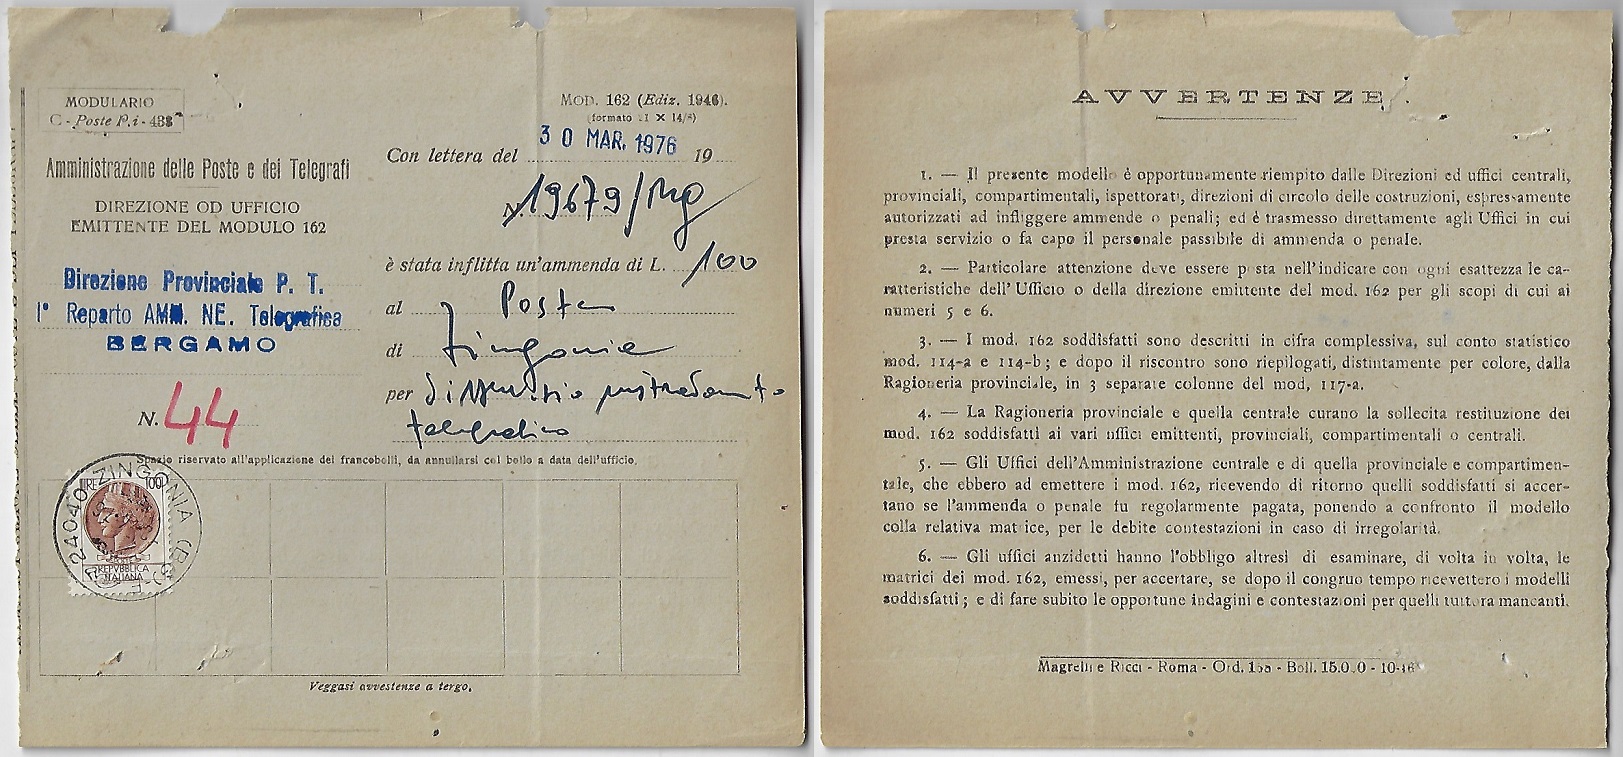 MODULARIO
C - Poste P.i - 488
MOD. 162 (Ediz. 1946).
(formato 21 X 14/8)
Amministrazione delle Poste e dei Telegrafi
DIREZIONE OD UFFICIO
EMITTENTE DEL MODULO 162
Direzione Provinciale P. T.
I° Reparto AMM. NE. Telegrafica
BERGAMO
N. 44
Con lettera del 30 MAR. 1976 19
N. 19679/
è stata inflitta un'ammenda di L. 100
al Posta
di Zingonia
per
telegrafico
Spazio riservato all'applicazione dei francobolli, da annullarsi col bollo a data dell'ufficio.
24040 ZINGONIA (BG)
LIRE 100
POSTE
REPVBBLICA
ITALIANA
Veggasi avvestenze a tergo.
AVVERTENZE.
1. — Il presente modello è opportunamente riempito dalle Direzioni ed uffici centrali,
provinciali, compartimentali, ispettorati, direzioni di circolo delle costruzioni, espressamente
autorizzati ad infliggere ammende o penali; ed è trasmesso direttamente agli Uffici in cui
presta servizio o fa capo il personale passibile di ammenda o penale.
2. — Particolare attenzione deve essere posta nell'indicare con ogni esattezza le ca-
ratteristiche dell'Ufficio o della direzione emittente del mod. 162 per gli scopi di cui ai
numeri 5 e 6.
3. — I mod. 162 soddisfatti sono descritti in cifra complessiva, sul conto statistico
mod. 114-a e 114-b; e dopo il riscontro sono riepilogati, distintamente per colore, dalla
Ragioneria provinciale, in 3 separate colonne del mod, 117-a.
4. — La Ragioneria provinciale e quella centrale curano la sollecita restituzione dei
mod. 162 soddisfatti ai vari uffici emittenti, provinciali, compartimentali o centrali.
5. — Gli Uffici dell'Amministrazione centrale e di quella provinciale e compartimen-
tale, che ebbero ad emettere i mod. 162, ricevendo di ritorno quelli soddisfatti si accer-
tano se l'ammenda o penale fu regolarmente pagata, ponendo a confronto il modello
colla relativa matrice, per le debite contestazioni in caso di irregolarità.
6. — Gli uffici anzidetti hanno l'obbligo altresì di esaminare, di volta in volta, le
matrici dei mod. 162, emessi, per accertare, se dopo il congruo tempo ricevettero i modelli
soddisfatti; e di fare subito le opportune indagini e contestazioni per quelli tuttora mancanti.
Magrelli e Ricci - Roma - Ord. - Boll. - 10-46